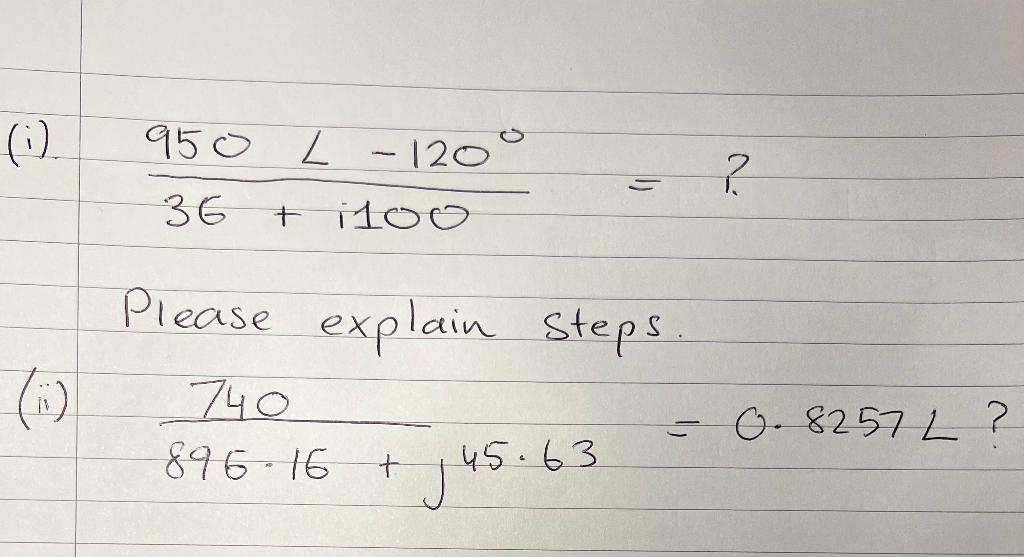 (i). 950 ∠ -120°
36 + i100 = ?
Please explain steps.
(ii) 740
896.16 + j45.63 = 0.8257 ∠ ?